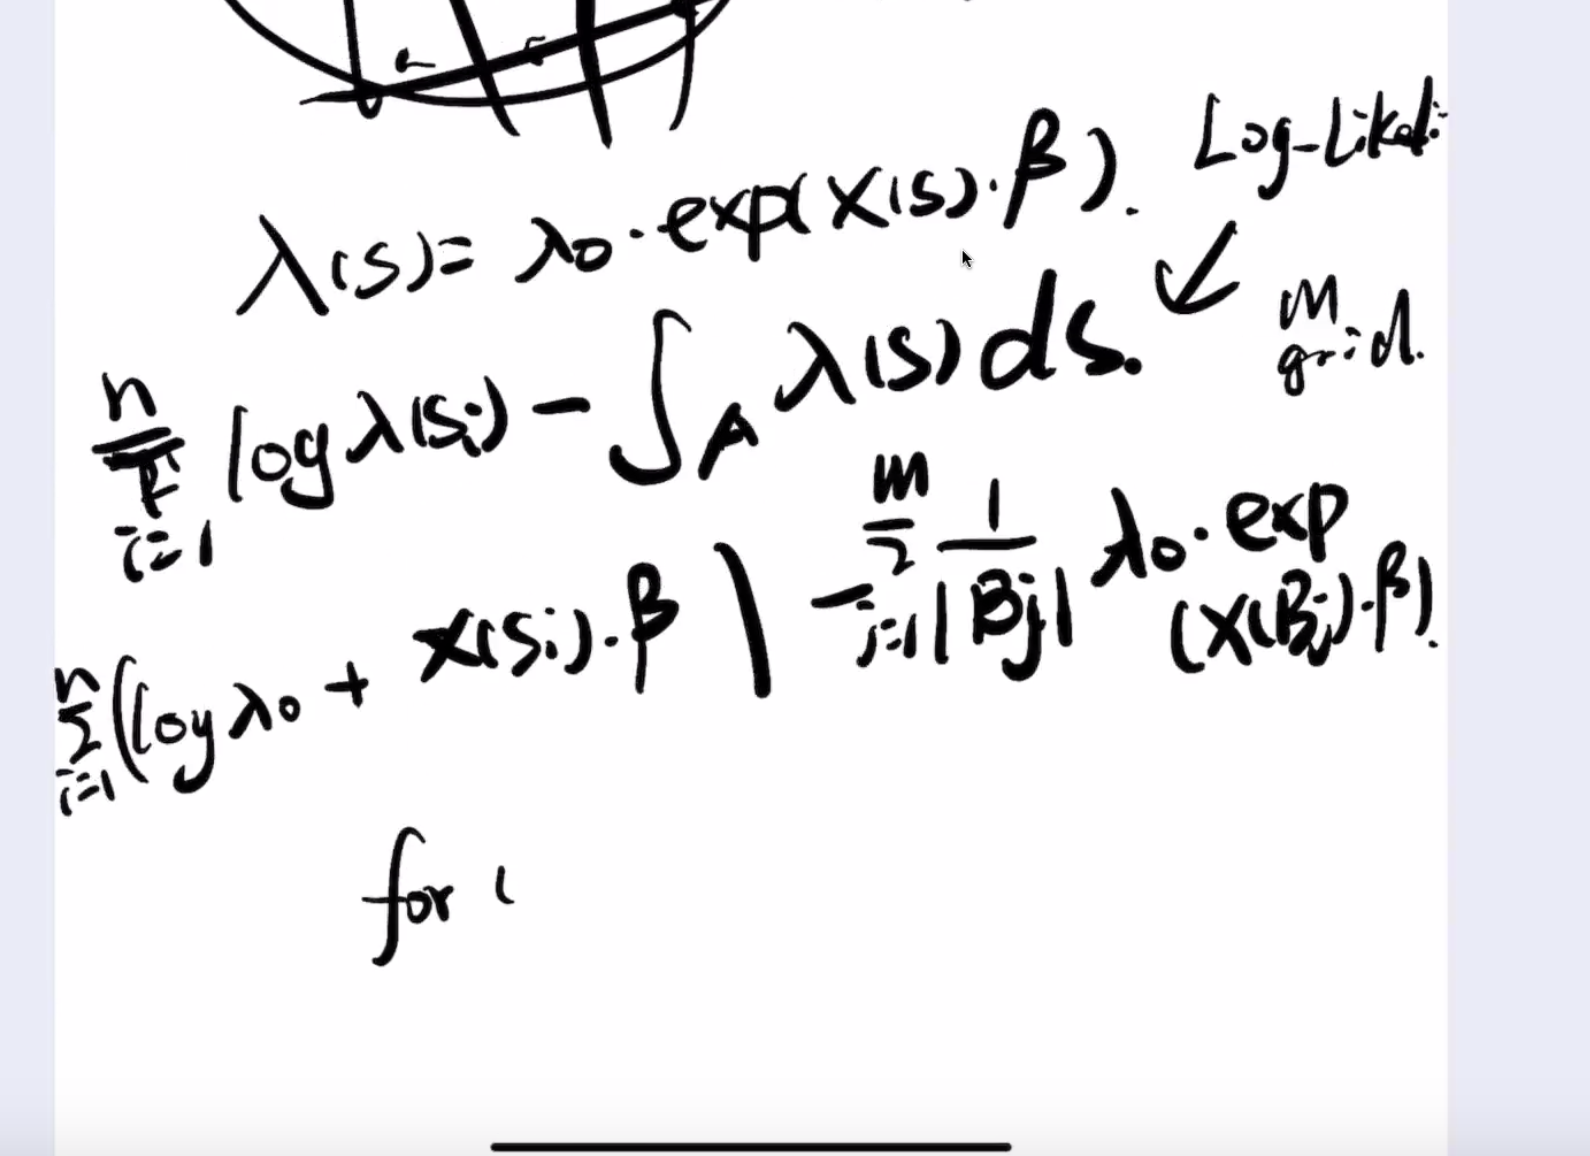 λ(s) = λ0 · exp(X(s) · β). Log-Likeli
∑_{i=1}^{n} log λ(si) − ∫_A λ(s) ds. ↙ m grid.
∑_{i=1}^{n} (log λ0 + X(si) · β) − ∑_{j=1}^{m} 1/|Bj| λ0 · exp (X(Bj) · β).
for